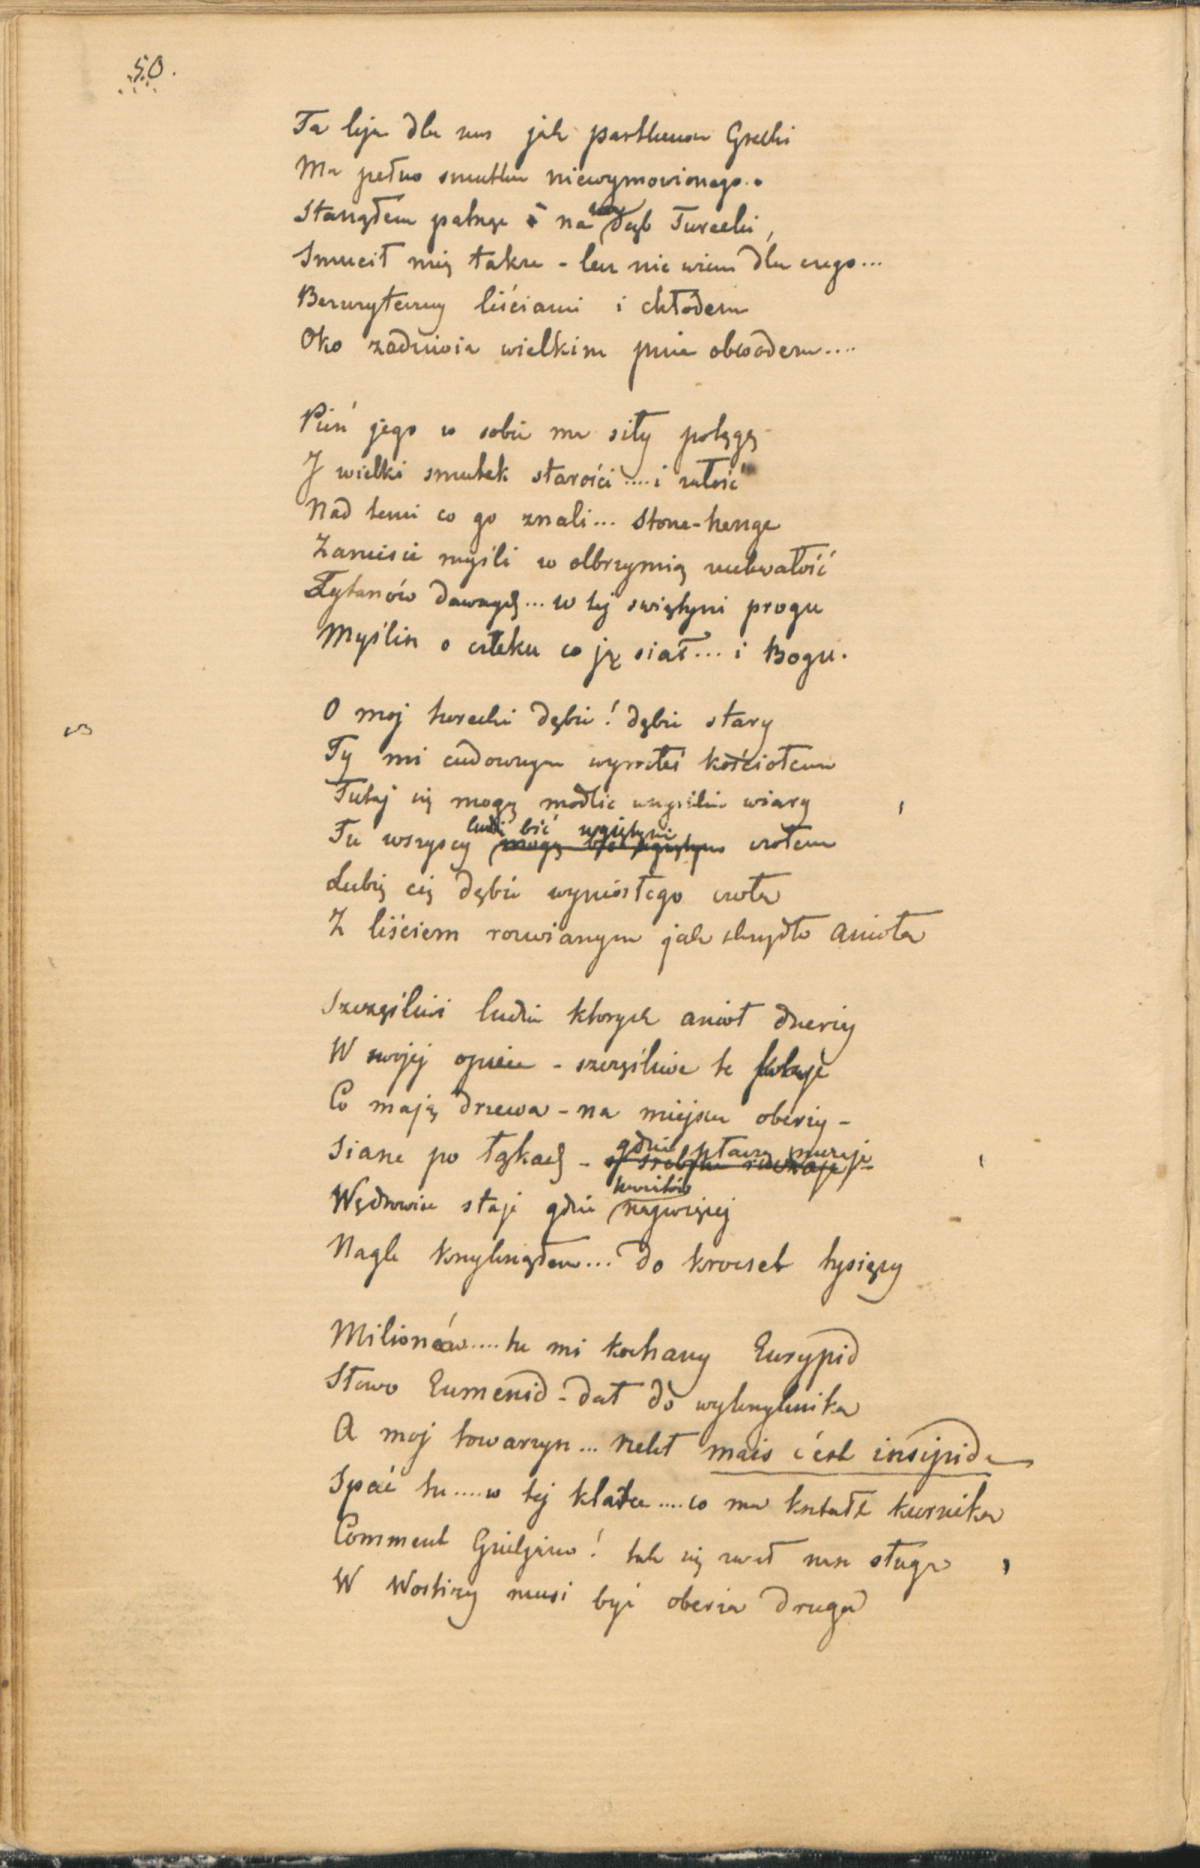 50.
Ta lija dla nas jak parthenon Grecki
Ma pełno smutku niewymowionego..
Stanąłem patrzę na ten dąb Turecki,
Smucił mię także - lecz nie wiem dla czego...
Bezużyteczny liściami i chłodem
Oko zadziwia wielkim pnia obwodem....
Pień jego w sobie ma siły potęgę
I wielki smutek starości.... i żałość
Nad temi co go znali... Stone-henge
Zaniesie myśli w olbrzymią zuchwałość
Tytanów dawnych... w tej swiątyni progu
Myślin o człeku co ją siał... i Bogu.
O moj turecki dębie! dębie stary
Ty mi cudownym wyrosłeś kościołem
Tutaj się mogą modlic wszystkie wiary
ludzie bić wzniętymi
Tu wszyscy mogą bić czołem
Lubię cię dębie wyniosłego czoła
Z liściem rozwianym jak skrzydło Anioła
Szczęśliwi ludzie ktorych anioł dzierży
W swojej opiece - szczęśliwe te kraje
Co mają drzewa - na miejscu oberży -
gdzie ptaszę
Siane po łąkach -
kwiatów
Wędrowiec staje gdzie najwięcej
Nagle krzyknąłem... do krociset tysięcy
Milionów.... tu mi kochany Eurypid
Słowo Eumenid - dał do wykrzyknika
A moj towarzysz... rzekł mais c'est insipide
Spać tu.... w tej klatce.... co ma kształt kurnika
Comment Gridjano! tak się zwał nasz sługa
W Wostizy musi być oberża druga